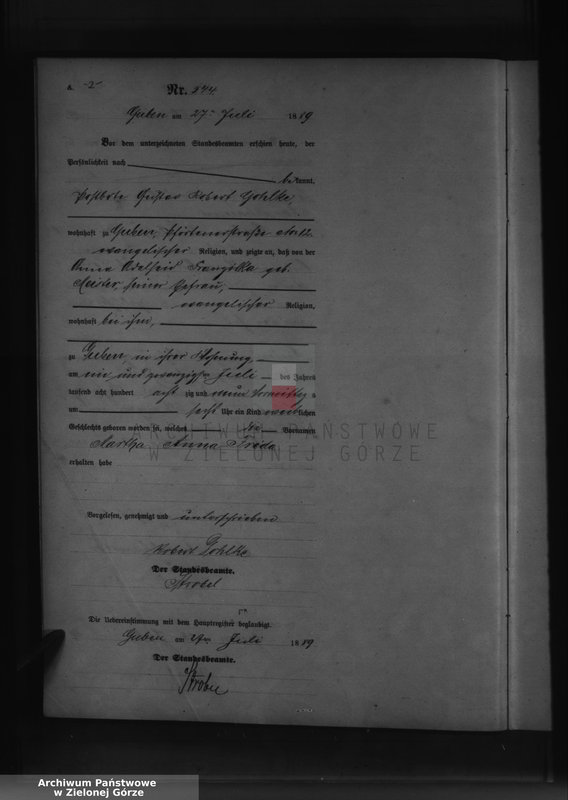 A. -2-
Nr. 544.
Guben am 27ten Juli 1889
Vor dem unterzeichneten Standesbeamten erschien heute, der
Persönlichkeit nach
bekannt,
Postbote Gustav Robert Gohlke,
wohnhaft zu Guben, Pförtenerstraße No 12.
evangelischer Religion, und zeigte an, daß von der
Anna Adelheid Franziska geb.
seiner Ehefrau,
evangelischer Religion,
wohnhaft bei ihm,
zu Guben in ihrer Wohnung
am ein und zwanzigsten Juli des Jahres
tausend acht hundert achtzig und neun Vormittags
um sechs Uhr ein Kind weiblichen
Geschlechts geboren worden sei, welches die Vornamen
Martha Anna Frieda
erhalten habe
Vorgelesen, genehmigt und unterschrieben
Robert Gohlke
Der Standesbeamte.
Strobel
Die Uebereinstimmung mit dem Hauptregister beglaubigt.
Guben am 27ten Juli 1889
Der Standesbeamte.
Strobel
ARCHIWUM PAŃSTWOWE
W ZIELONEJ GÓRZE
Archiwum Państwowe
w Zielonej Górze